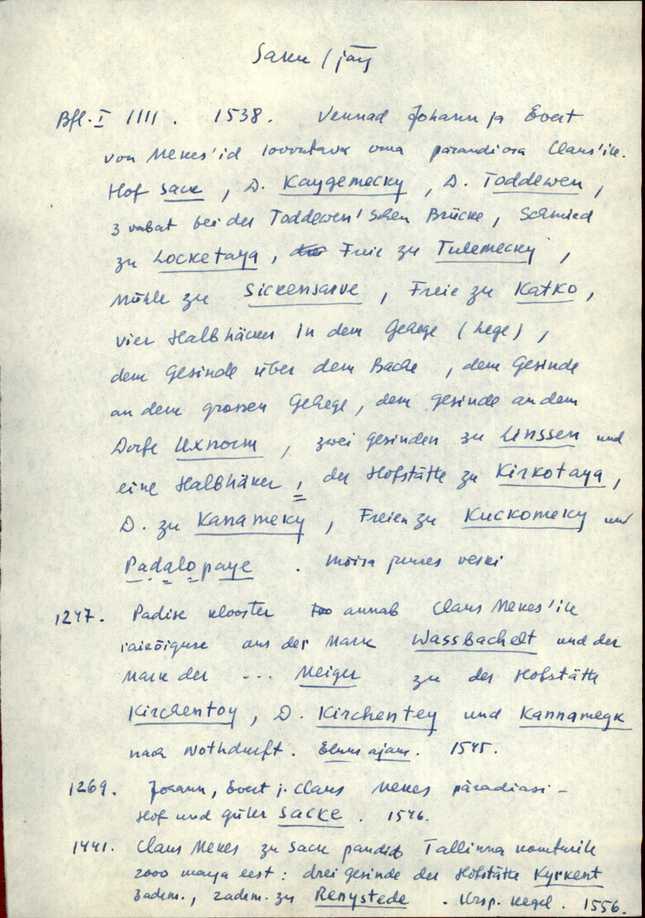 Saku / jäg
Bfl. I 1111. 1538. Vennad Johann ja Evert
von Mekes'id loovutavad oma pärandiosa Claus'ile.
Hof Sack, D. Kaygemecky, D. Toddewen,
3 vabat bei der Toddewen'schen Brücke, Schmied
zu Locketaya, Freie zu Tulemecky,
Mühle zu Sickensarve, Freie zu Katko,
vier Halbhäcker in dem Gehege (hege),
dem Gesinde über dem Bache, dem Gesinde
an dem grossen Gehege, dem Gesinde an dem
Dorfe Uxnorm, zwei Gesinden zu Linssen und
eine Halbhäker, der Hofstätte zu Kirkotaya,
D. zu Kanameky, Freien zu Kuckomeky und
Padalopaye. Moisa juures veski
1247. Padise klooster annab Claus Mekes'ile
raieõiguse aus der Mark Wassbachelt und der
Mark der ... Meiger zu der Hofstätte
Kirchentoy, D. Kirchentey und Kannamegk
nach Nothdurft. Eluns ajans. 1545.
1269. Johann, Evert j. Claus Mekes päradiasi-
Hof und güter Sacke. 1546.
1441. Claus Mekes zu Sack pandib Tallinna komturile
2000 marga eest: drei Gesinde der Hofstätte Kyrkent
3adem., 2adem. zu Renystede. Kirsp. Kegel. 1556.